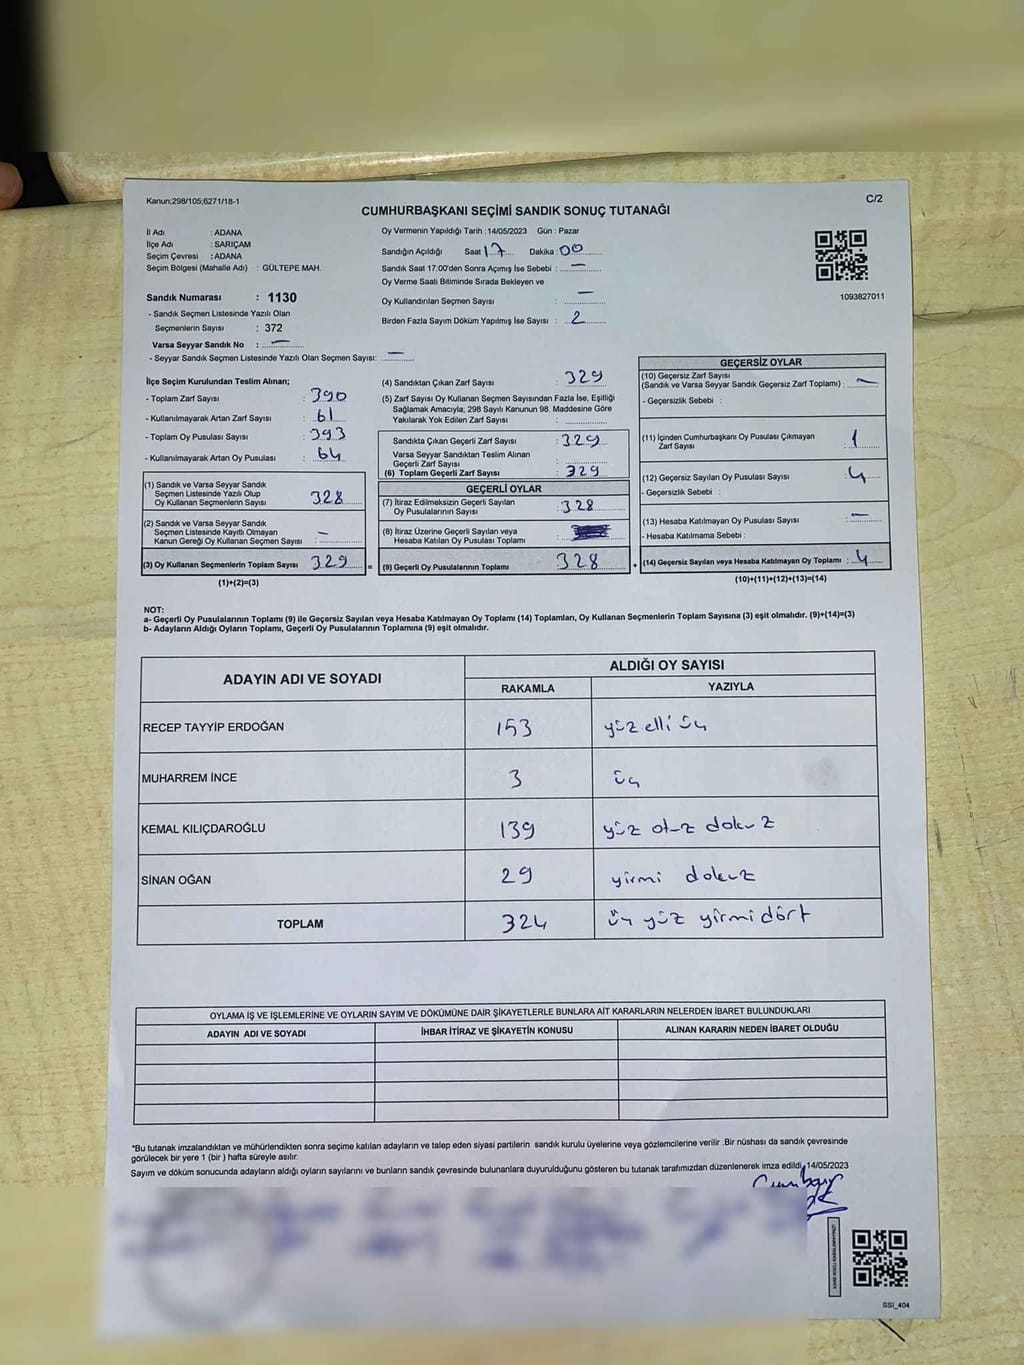 Kanun;298/105;6271/18-1
C/2
CUMHURBAŞKANI SEÇİMİ SANDIK SONUÇ TUTANAĞI
İl Adı : ADANA
İlçe Adı : SARIÇAM
Seçim Çevresi : ADANA
Seçim Bölgesi (Mahalle Adı) : GÜLTEPE MAH.
Sandık Numarası : 1130
- Sandık Seçmen Listesinde Yazılı Olan
Seçmenlerin Sayısı : 372
Varsa Seyyar Sandık No : —
- Seyyar Sandık Seçmen Listesinde Yazılı Olan Seçmen Sayısı: —
Oy Vermenin Yapıldığı Tarih :14/05/2023 Gün : Pazar
Sandığın Açıldığı Saat 17 Dakika : 00
Sandık Saat 17:00'den Sonra Açımış İse Sebebi : —
Oy Verme Saati Bitiminde Sırada Bekleyen ve
Oy Kullandırılan Seçmen Sayısı : —
Birden Fazla Sayım Döküm Yapılmış İse Sayısı : 2
1093827011
İlçe Seçim Kurulundan Teslim Alınan;
- Toplam Zarf Sayısı : 390
- Kullanılmayarak Artan Zarf Sayısı : 61
- Toplam Oy Pusulası Sayısı : 393
- Kullanılmayarak Artan Oy Pusulası : 64
(1) Sandık ve Varsa Seyyar Sandık
Seçmen Listesinde Yazılı Olup
Oy Kullanan Seçmenlerin Sayısı 328
(2) Sandık ve Varsa Seyyar Sandık
Seçmen Listesinde Kayıtlı Olmayan
Kanun Gereği Oy Kullanan Seçmen Sayısı —
(3) Oy Kullanan Seçmenlerin Toplam Sayısı 329 =
(1)+(2)=(3)
(4) Sandıktan Çıkan Zarf Sayısı : 329
(5) Zarf Sayısı Oy Kullanan Seçmen Sayısından Fazla İse, Eşitliği
Sağlamak Amacıyla; 298 Sayılı Kanunun 98. Maddesine Göre
Yakılarak Yok Edilen Zarf Sayısı :
Sandıkta Çıkan Geçerli Zarf Sayısı : 329
Varsa Seyyar Sandıktan Teslim Alınan
Geçerli Zarf Sayısı :
(6) Toplam Geçerli Zarf Sayısı : 329
GEÇERLİ OYLAR
(7) İtiraz Edilmeksizin Geçerli Sayılan
Oy Pusulalarının Sayısı : 328
(8) İtiraz Üzerine Geçerli Sayılan veya
Hesaba Katılan Oy Pusulası Toplamı :
(9) Geçerli Oy Pusulalarının Toplamı 328 +
GEÇERSİZ OYLAR
(10) Geçersiz Zarf Sayısı
(Sandık ve Varsa Seyyar Sandık Geçersiz Zarf Toplamı) : —
- Geçersizlik Sebebi :
(11) İçinden Cumhurbaşkanı Oy Pusulası Çıkmayan
Zarf Sayısı : 1
(12) Geçersiz Sayılan Oy Pusulası Sayısı : 4
- Geçersizlik Sebebi :
(13) Hesaba Katılmayan Oy Pusulası Sayısı : —
- Hesaba Katılmama Sebebi :
(14) Geçersiz Sayılan veya Hesaba Katılmayan Oy Toplamı : 4
(10)+(11)+(12)+(13)=(14)
NOT:
a- Geçerli Oy Pusulalarının Toplamı (9) ile Geçersiz Sayılan veya Hesaba Katılmayan Oy Toplamı (14) Toplamları, Oy Kullanan Seçmenlerin Toplam Sayısına (3) eşit olmalıdır. (9)+(14)=(3)
b- Adayların Aldığı Oyların Toplamı, Geçerli Oy Pusulalarının Toplamına (9) eşit olmalıdır.
ADAYIN ADI VE SOYADI
ALDIĞI OY SAYISI
RAKAMLA YAZIYLA
RECEP TAYYİP ERDOĞAN 153 yüz elli üç
MUHARREM İNCE 3 üç
KEMAL KILIÇDAROĞLU 139 yüz otuz dokuz
SİNAN OĞAN 29 yirmi dokuz
TOPLAM 324 üç yüz yirmi dört
OYLAMA İŞ VE İŞLEMLERİNE VE OYLARIN SAYIM VE DÖKÜMÜNE DAİR ŞİKAYETLERLE BUNLARA AİT KARARLARIN NELERDEN İBARET BULUNDUKLARI
ADAYIN ADI VE SOYADI İHBAR İTİRAZ VE ŞİKAYETİN KONUSU ALINAN KARARIN NEDEN İBARET OLDUĞU
*Bu tutanak imzalandıktan ve mühürlendikten sonra seçime katılan adayların ve talep eden siyasi partilerin sandık kurulu üyelerine veya gözlemcilerine verilir .Bir nüshası da sandık çevresinde
görülecek bir yere 1 (bir ) hafta süreyle asılır.
Sayım ve döküm sonucunda adayların aldığı oyların sayılarını ve bunların sandık çevresinde bulunanlara duyurulduğunu gösteren bu tutanak tarafımızdan düzenlenerek imza edildi. 14/05/2023
SSI_404